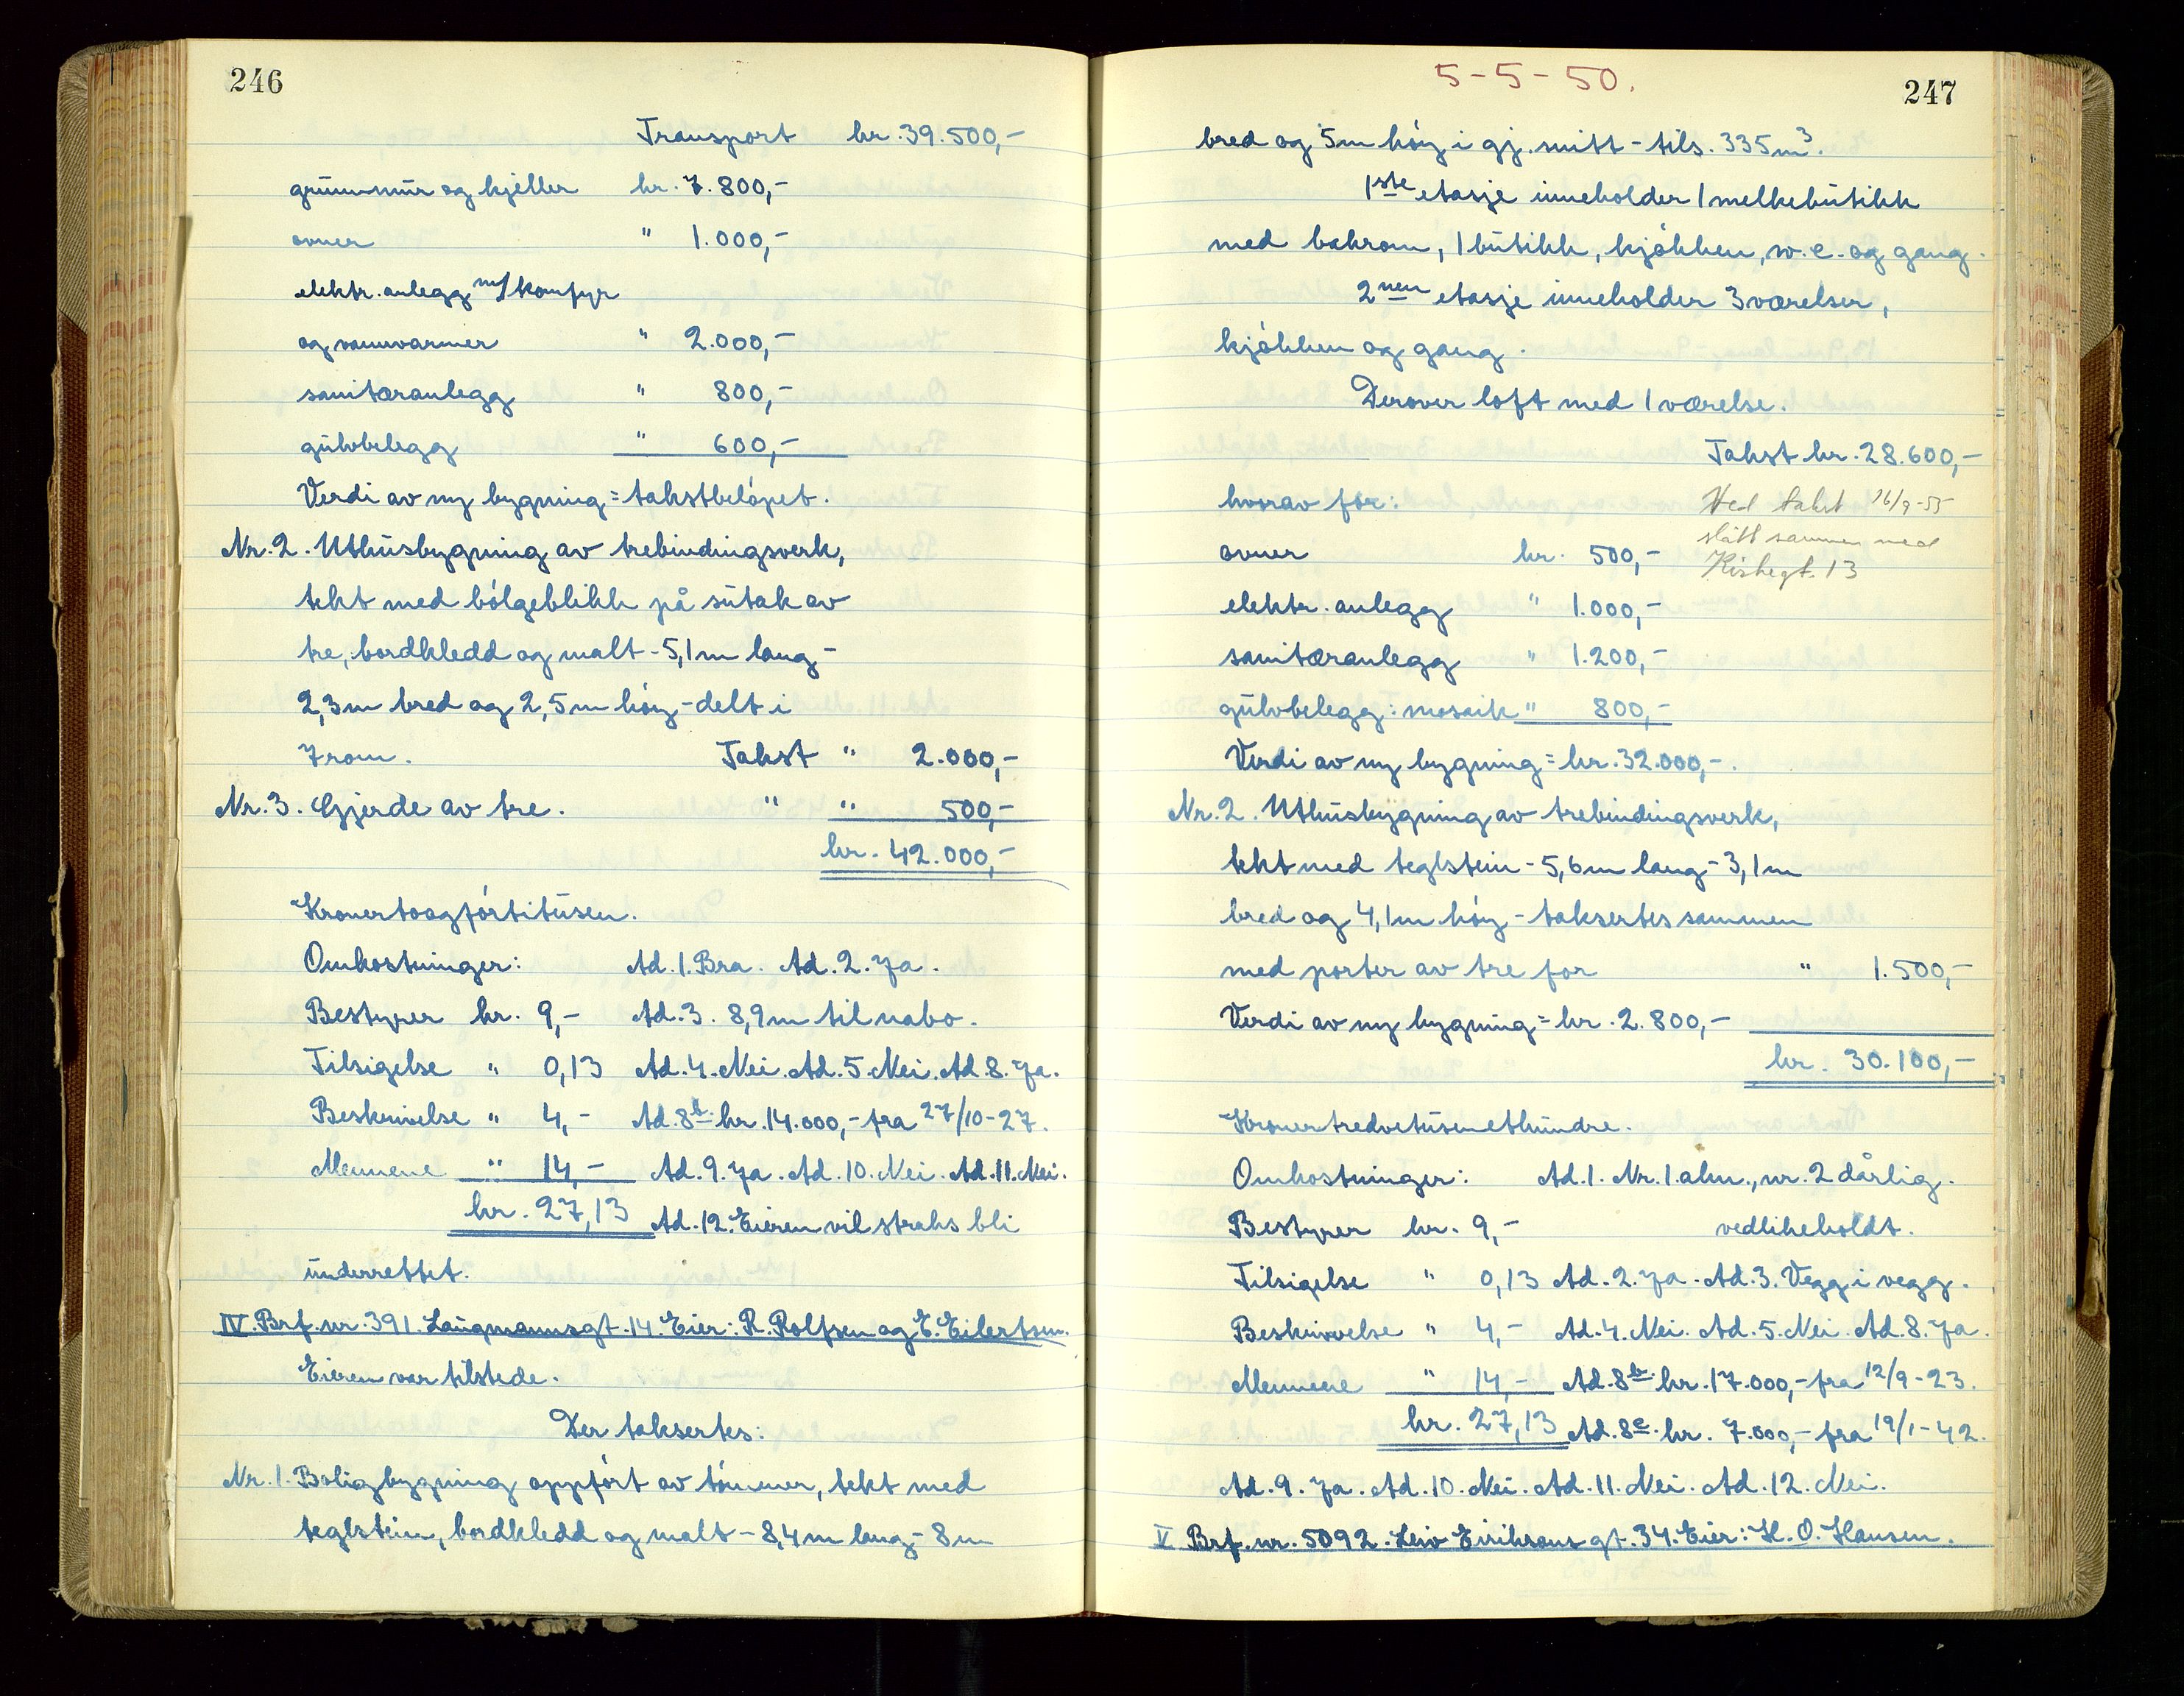 246
Transport kr. 39.500,-
grunnmur og kjeller kr. 7.800,-
ovner " 1.000,-
elektr. anlegg m/komfyr
og vannvarmer " 2.000,-
sanitæranlegg " 800,-
gulvbelegg " 600,-
Verdi av ny bygning = takstbeløpet.
Nr. 2. Uthusbygning av trebindingsverk,
tekt med bølgeblikk på sutak av
tre, bordkledd og malt - 5,1 m lang -
2,3 m bred og 2,5 m høy - delt i
7 rom. Takst " 2.000,-
Nr. 3. Gjerde av tre. " " 500,-
kr. 42.000,-
Kronertoogførtitusen.
Omkostninger: Ad. 1. Bra. Ad. 2. Ja.
Bestyrer kr. 9,- Ad. 3. 8,9 m til nabo.
Tilsigelse " 0,13 Ad. 4. Nei. Ad. 5. Nei. Ad. 8. Ja.
Beskrivelse " 4,- Ad. 8b. kr. 14.000,- fra 27/10-27.
Mennene " 14,- Ad. 9. Ja. Ad. 10. Nei. Ad. 11. Nei.
kr. 27,13 Ad. 12. Eieren vil straks bli
underrettet.
IV. Brf. nr. 391. Langmannsgt. 14. Eier: R. Rolfsen og E. Eilertsen.
Eieren var tilstede.
Der taksertes:
Nr. 1. Boligbygning oppført av tømmer, tekt med
teglstein, bordkledd og malt - 8,4 m lang - 8 m
5-5-50.
247
bred og 5 m høy i gj. snitt - tils. 335 m³.
1ste etasje inneholder 1 melkebutikk
med bakrom, 1 butikk, kjøkken, w.c. og gang.
2nen etasje inneholder 3 værelser,
kjøkken og gang.
Derover loft med 1 værelse.
Takst kr. 28.600,-
hvorav for:
Ved takst 16/9-55
slått sammen med
Kirkegt. 13
ovner kr. 500,-
elektr. anlegg " 1.000,-
sanitæranlegg " 1.200,-
gulvbelegg: mosaik " 800,-
Verdi av ny bygning = kr. 32.000,-.
Nr. 2. Uthusbygning av trebindingsverk,
tekt med teglstein - 5,6 m lang - 3,1 m
bred og 4,1 m høy - taksertes sammen
med porter av tre for " 1.500,-
Verdi av ny bygning = kr. 2.800,-
kr. 30.100,-
Kronertredvetusenethundre.
Omkostninger: Ad. 1. Nr. 1. alm., nr. 2 dårlig
Bestyrer kr. 9,- vedlikeholdt.
Tilsigelse " 0,13 Ad. 2. Ja. Ad. 3. Vegg i vegg.
Beskrivelse " 4,- Ad. 4. Nei. Ad. 5. Nei. Ad. 8. Ja.
Mennene " 14,- Ad. 8b. kr. 17.000,- fra 12/9-23.
kr. 27,13 Ad. 8c. kr. 7.000,- fra 19/1-42.
Ad. 9. Ja. Ad. 10. Nei. Ad. 11. Nei. Ad. 12. Nei.
V. Brf. nr. 5092. Leiv Eiriksons gt. 34. Eier: H. O. Hansen.